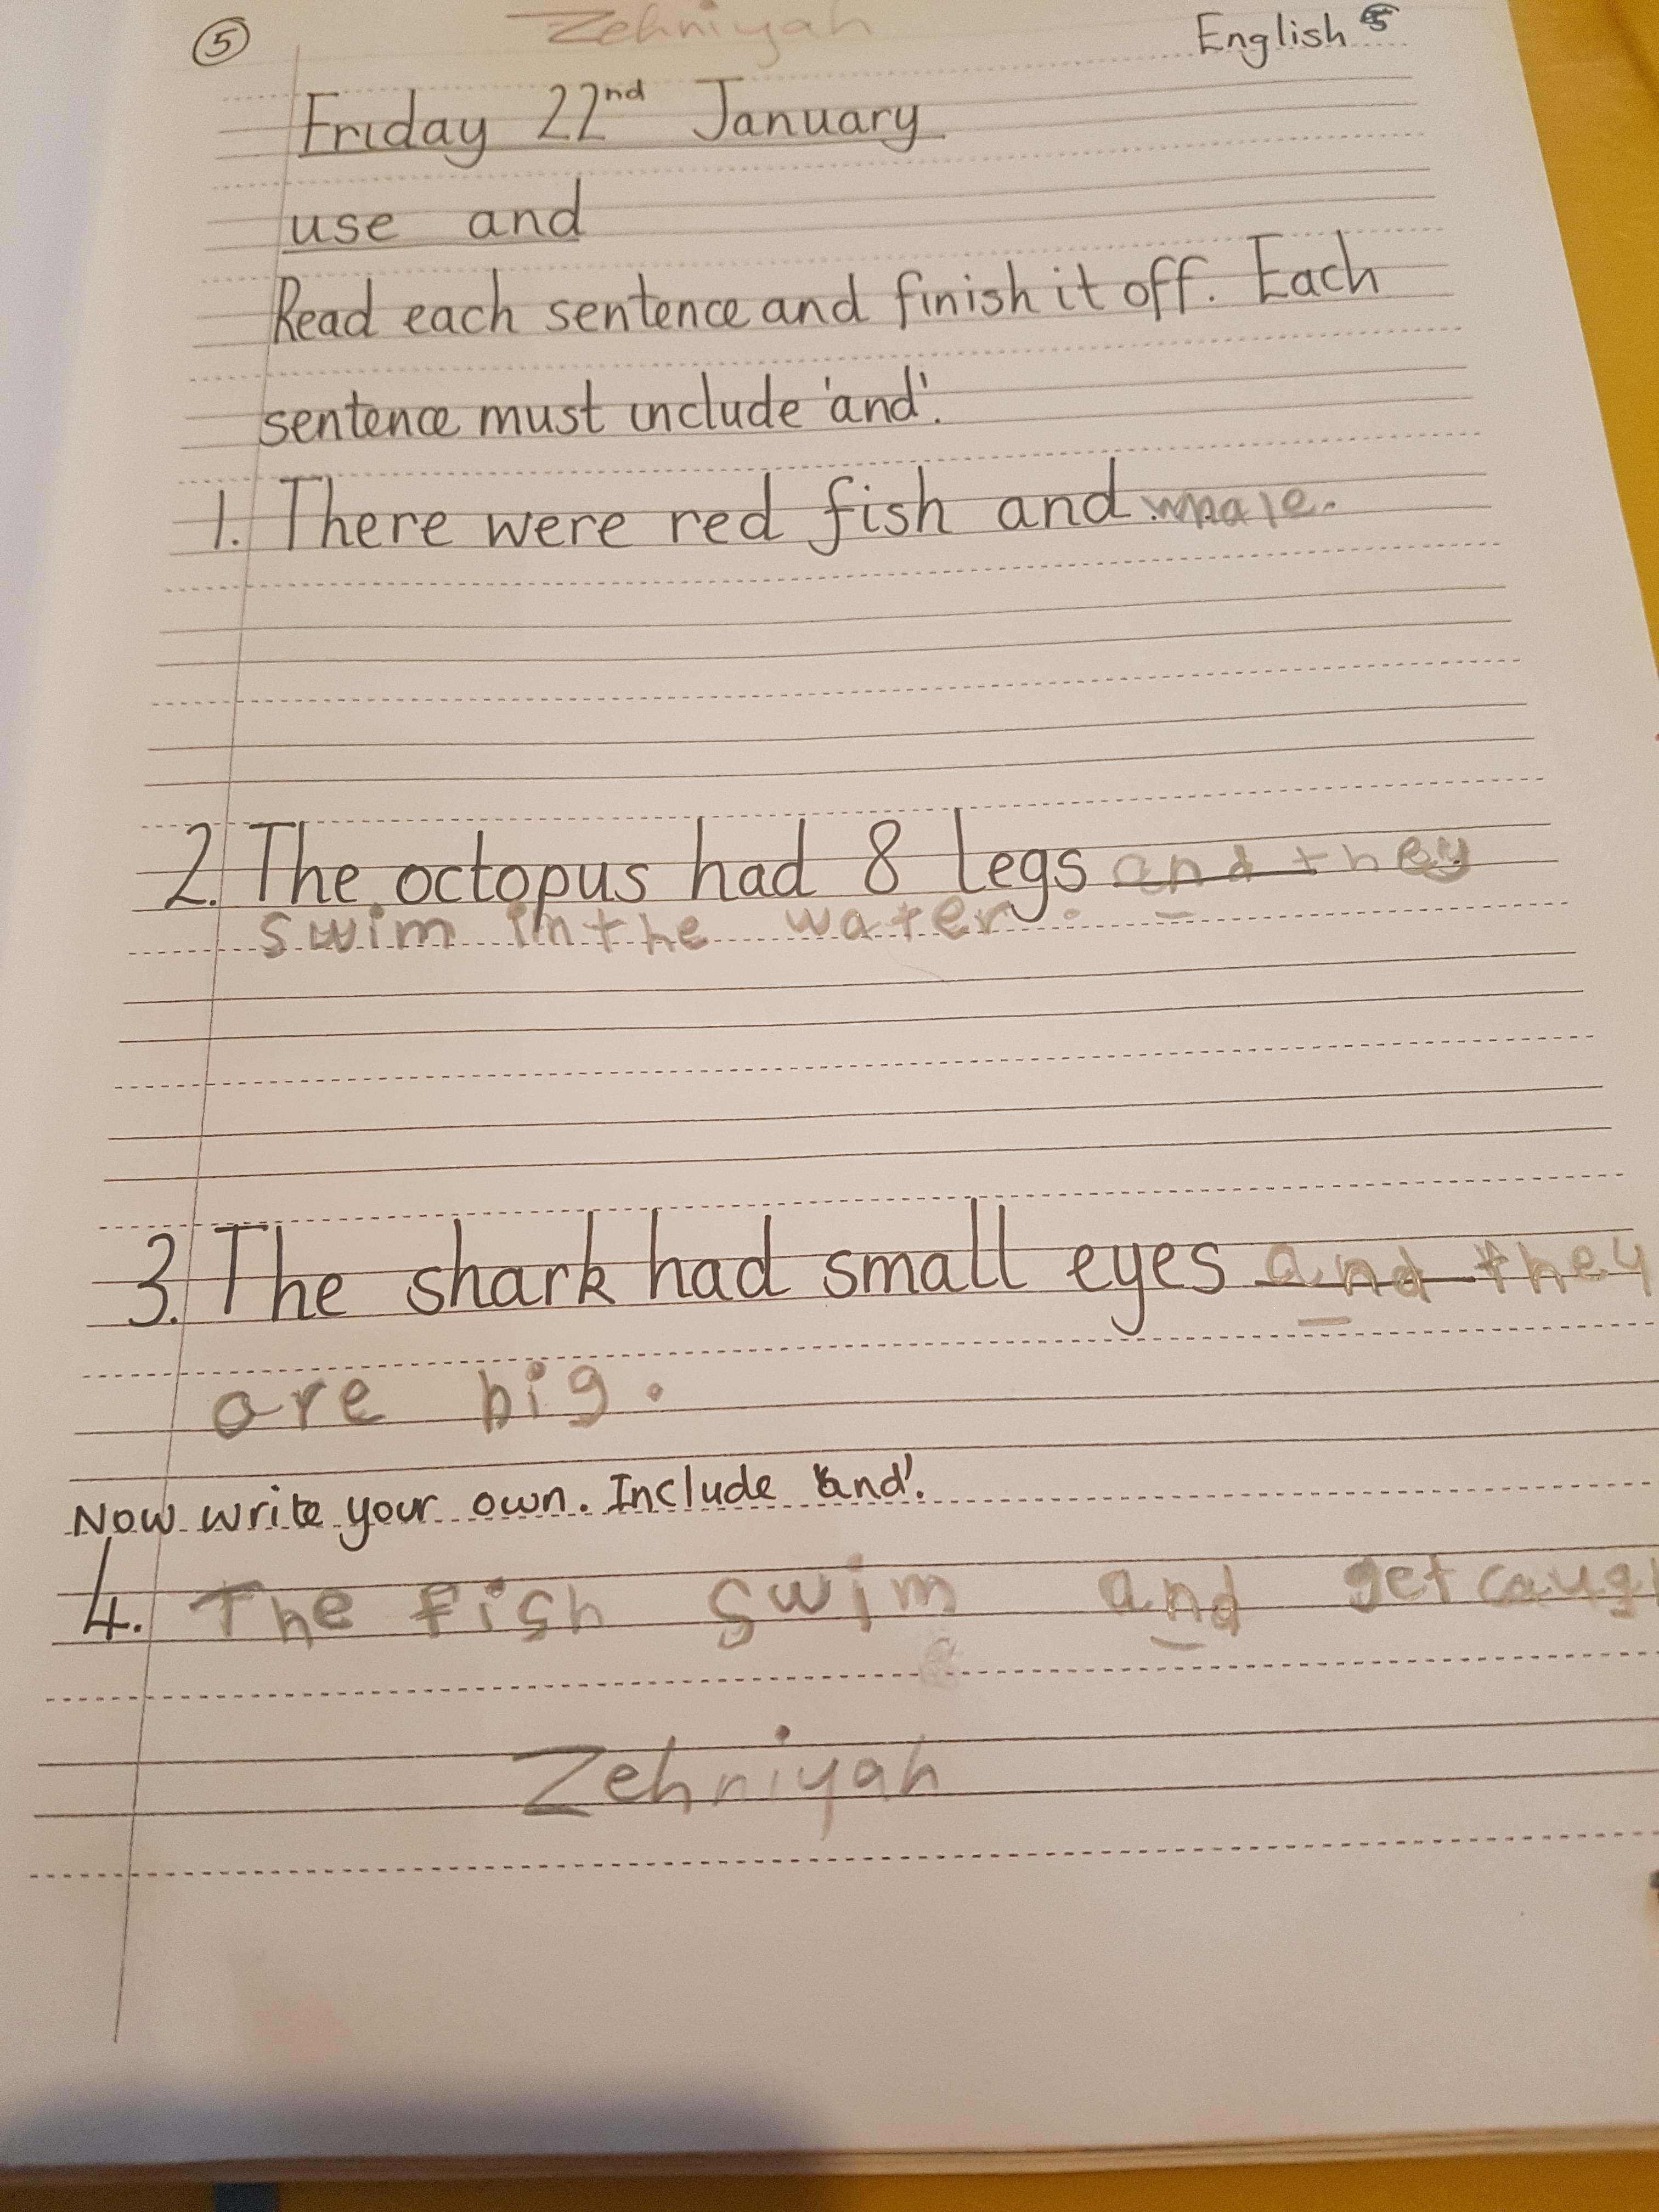 5 Zehniyah English 5
Friday 22nd January
use and
Read each sentence and finish it off. Each
sentence must include 'and'.
1. There were red fish and whale.
2. The octopus had 8 legs and they
swim in the water.
3. The shark had small eyes and they
are big.
Now write your own. Include 'and'.
4. The fish swim and get caug
Zehniyah